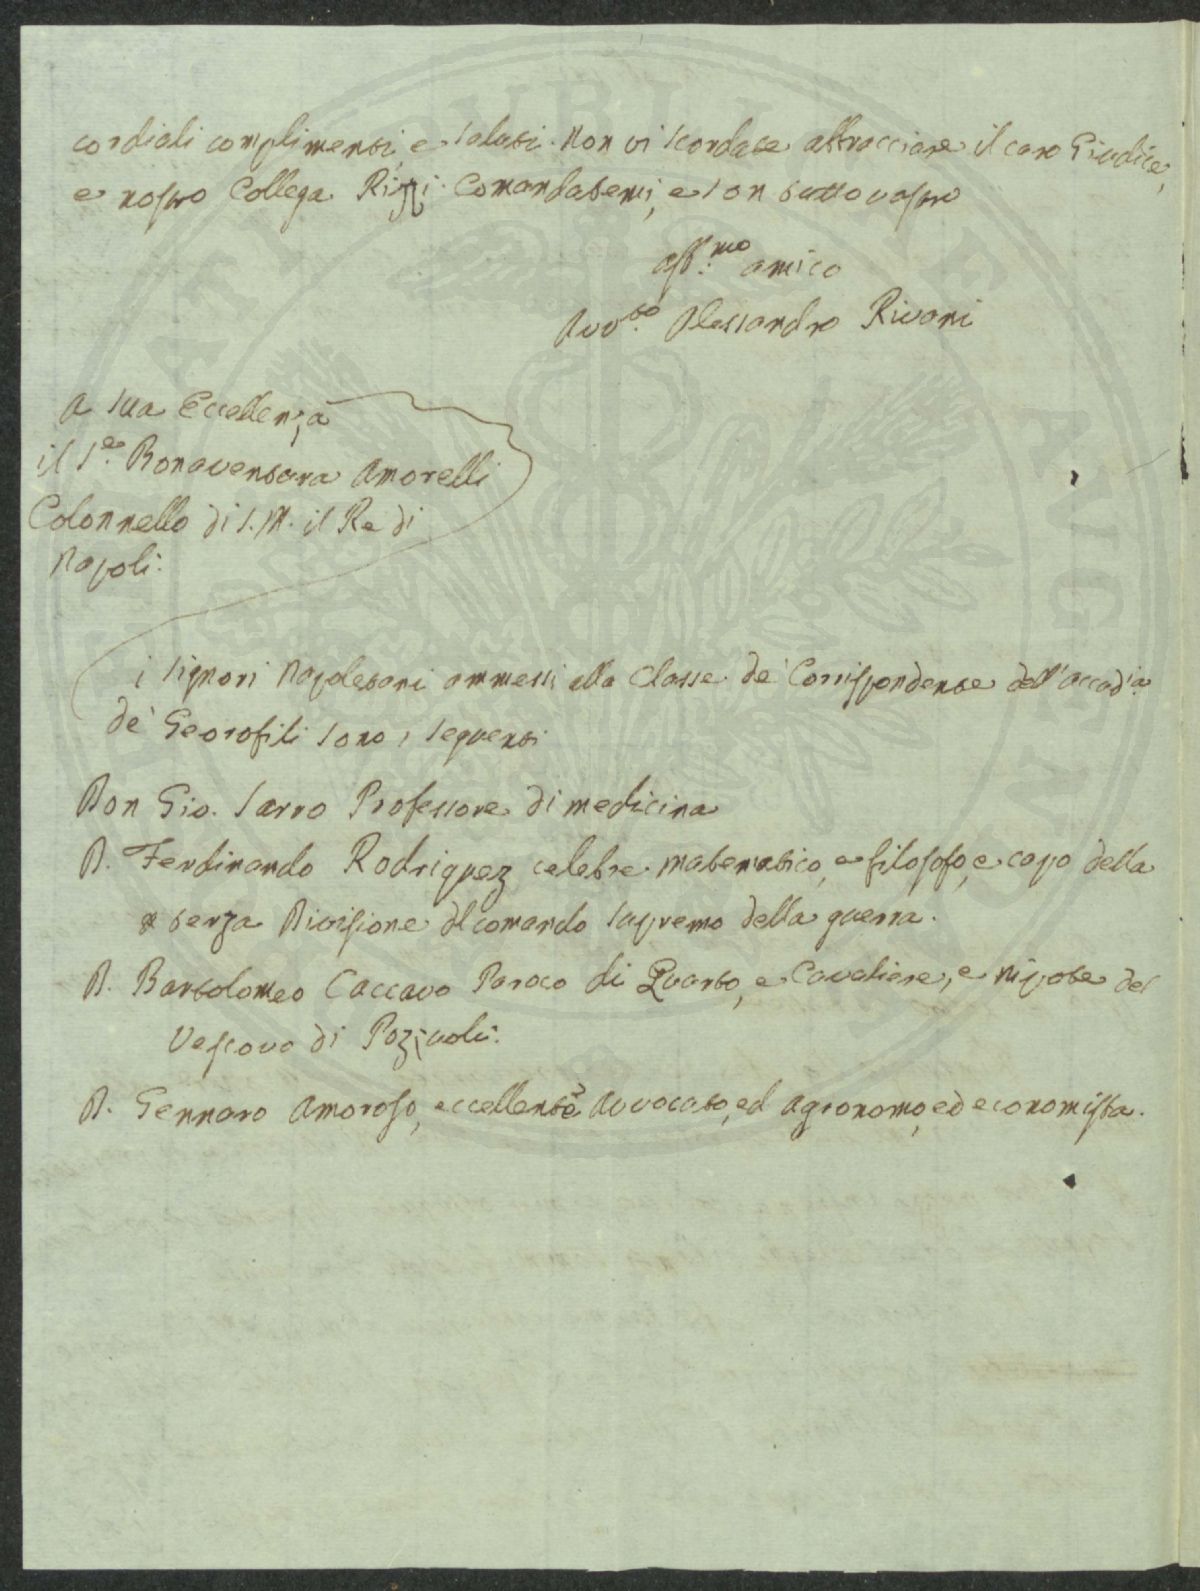 cordiali complimenti, e saluti. Non vi scordate abbracciare il caro Giudice,
e nostro Collega Rizzi. Comandatemi, e son tutto vostro
aff.mo amico
Avv.to Alessandro Rivani
A Sua Eccellenza
il S.e Bonaventura Amorelli
Colonnello di S. M. il Re di
Napoli.
i signori Napoletani ammessi alla Classe de' Corrispondente dell'accad.ia
de' Georofili sono i seguenti
Don Gio. Sarro Professore di medicina
D. Ferdinando Rodriguez celebre matematico, e filosofo, e capo della
terza Divisione del comando supremo della guerra.
D. Bartolomeo Caccavo Paroco di Quarto, e Cavaliere, e nipote del
Vescovo di Pozzuoli.
D. Gennaro Amoroso, eccellente Avvocato, ed agronomo, ed economista.